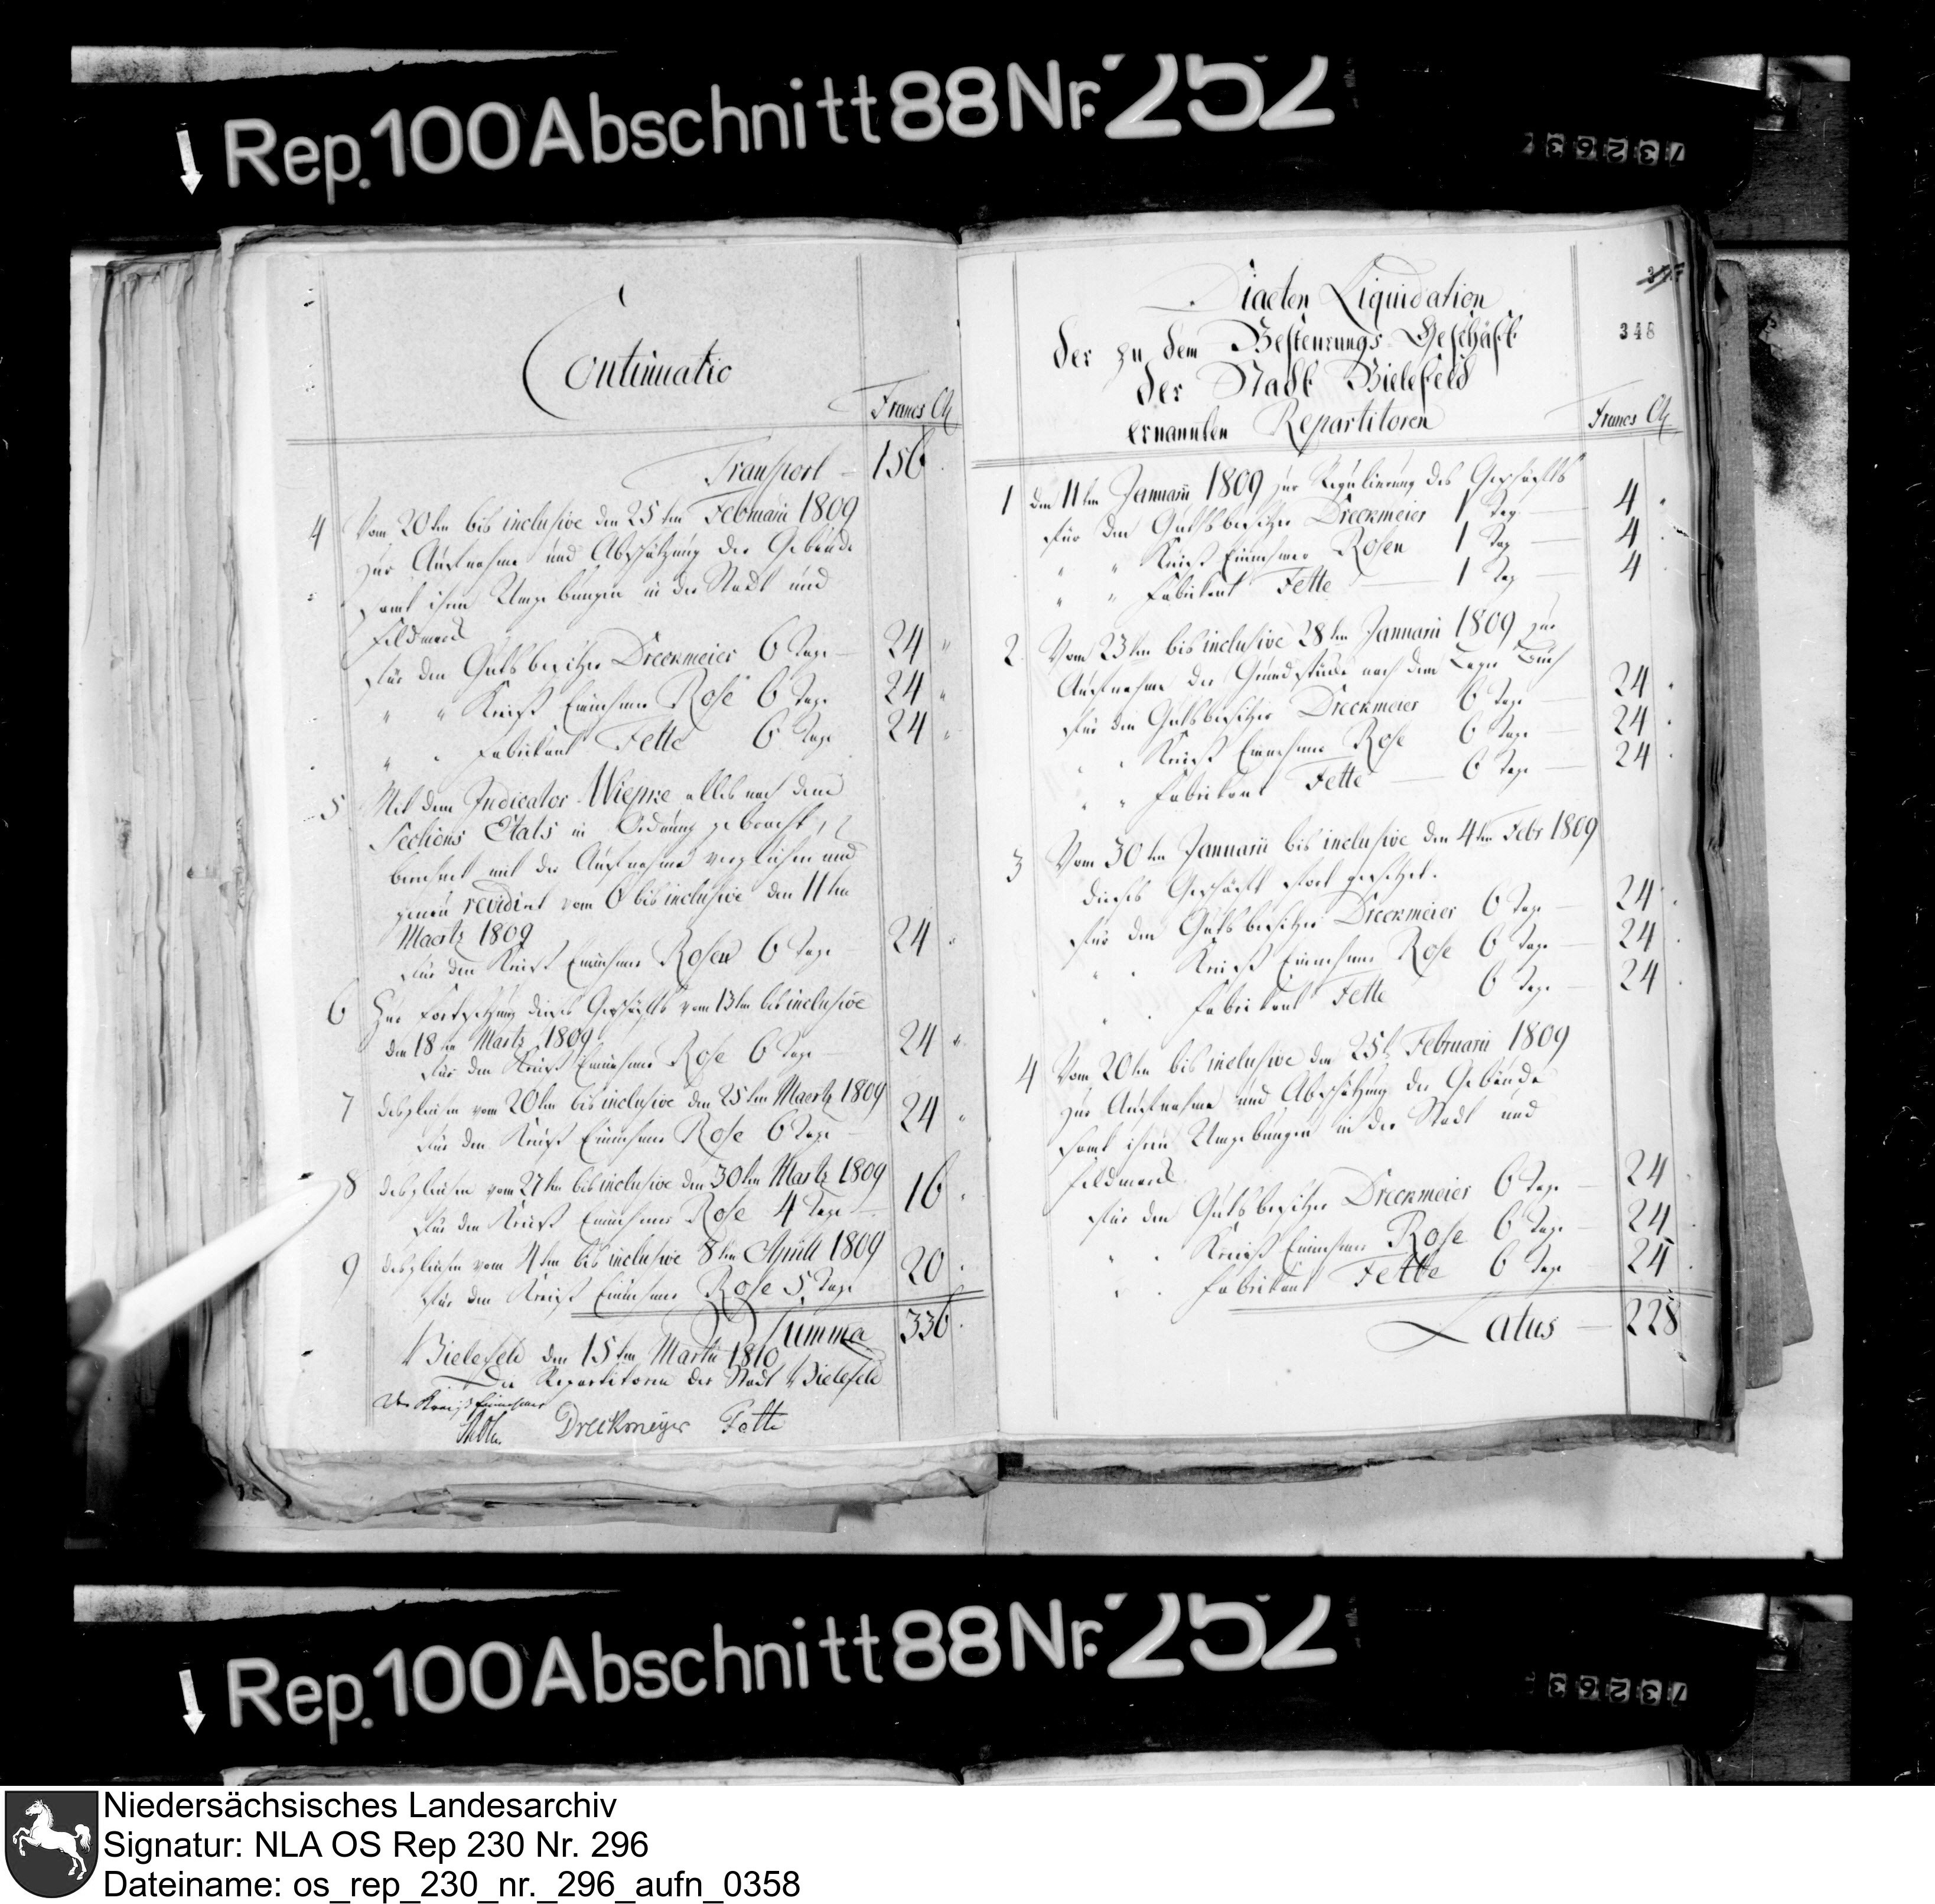 Rep. 100 Abschnitt 88 Nr. 252
Continuatio
Francs Ct
Transport - 156
4 Vom 20ten bis inclusive den 25ten Februarii 1809
zur Aufnahme und Abschätzung der Gebäude
samt ihren Umgebungen in der Stadt und
Feldmark
für den Gutsbesitzer Dreckmeier 6 Tage - 24 "
" " Kreiß Einnehmer Rose 6 Tage 24 "
" " Fabrikant Fette 6 Tage 24 "
5 Mit dem Indicator Wiepke alles nach dem
Sections Etats in Ordnung gebracht,
berechnet mit der Aufnahme verglichen und
genau revidirt vom 6 bis inclusive den 11ten
Maertz 1809
für den Kreiß Einnehmer Rosen 6 Tage 24 "
6 Zur Fortsetzung dieses Geschäfts vom 13ten bis inclusive
den 18ten Martz 1809
für den Kreiß Einnehmer Rose 6 Tage 24 "
7 desgleichen vom 20ten bis inclusive den 25ten Maertz 1809
für den Kreiß Einnehmer Rose 6 Tage 24 "
8 desgleichen vom 27ten bis inclusive den 30ten Martz 1809
für den Kreiß Einnehmer Rose 4 Tage - 16 "
9 desgleichen vom 4ten bis inclusive 8ten Aprill 1809
für den Kreiß Einnehmer Rose 5 Tage 20 "
Summa 336
Bielefeld den 15ten Martii 1810
Die Repartitoren der Stadt Bielefeld
Der Kreiß Einnehmer
Dreckmeyer Fette
348
Diaeten Liquidation
der zu dem Besteurungs Geschäft
der Stadt Bielefeld
ernannten Repartitoren
Francs Ct
1 den 11ten Januarii 1809 zur Regulierung des Geschäfts
für den Gutsbesitzer Dreckmeier 1 Tag - 4 "
" " Kreiß Einnehmer Rosen 1 Tag - 4
" " Fabrikant Fette - 1 Tag - 4
2 Vom 23ten bis inclusive 28ten Januarii 1809 zur
Aufnahme der Grundstücke nach dem Lager Buch
für den Gutsbesitzer Dreckmeier 6 Tage - 24
" " Kreiß Einnehmer Rose 6 Tage - 24
" " Fabrikant Fette - 6 Tage - 24
3 Vom 30ten Januarii bis inclusive den 4ten Febr 1809
dieses Geschäft fort gesetzet.
für den Gutsbesitzer Dreckmeier 6 Tage - 24
" " Kreiß Einnehmer Rose 6 Tage - 24
" " Fabrikant Fette 6 Tage - 24
4 Vom 20ten bis inclusive den 25t Februarii 1809
zur Aufnahme und Abschätzung der Gebäude
samt ihren Umgebungen in der Stadt und
Feldmark
für den Gutsbesitzer Dreckmeier 6 Tage - 24
" " Kreiß Einnehmer Rose 6 Tage - 24
" " Fabrikant Fette 6 Tage - 24
Latus - 228
Rep. 100 Abschnitt 88 Nr. 252
Niedersächsisches Landesarchiv
Signatur: NLA OS Rep 230 Nr. 296
Dateiname: os_rep_230_nr._296_aufn_0358